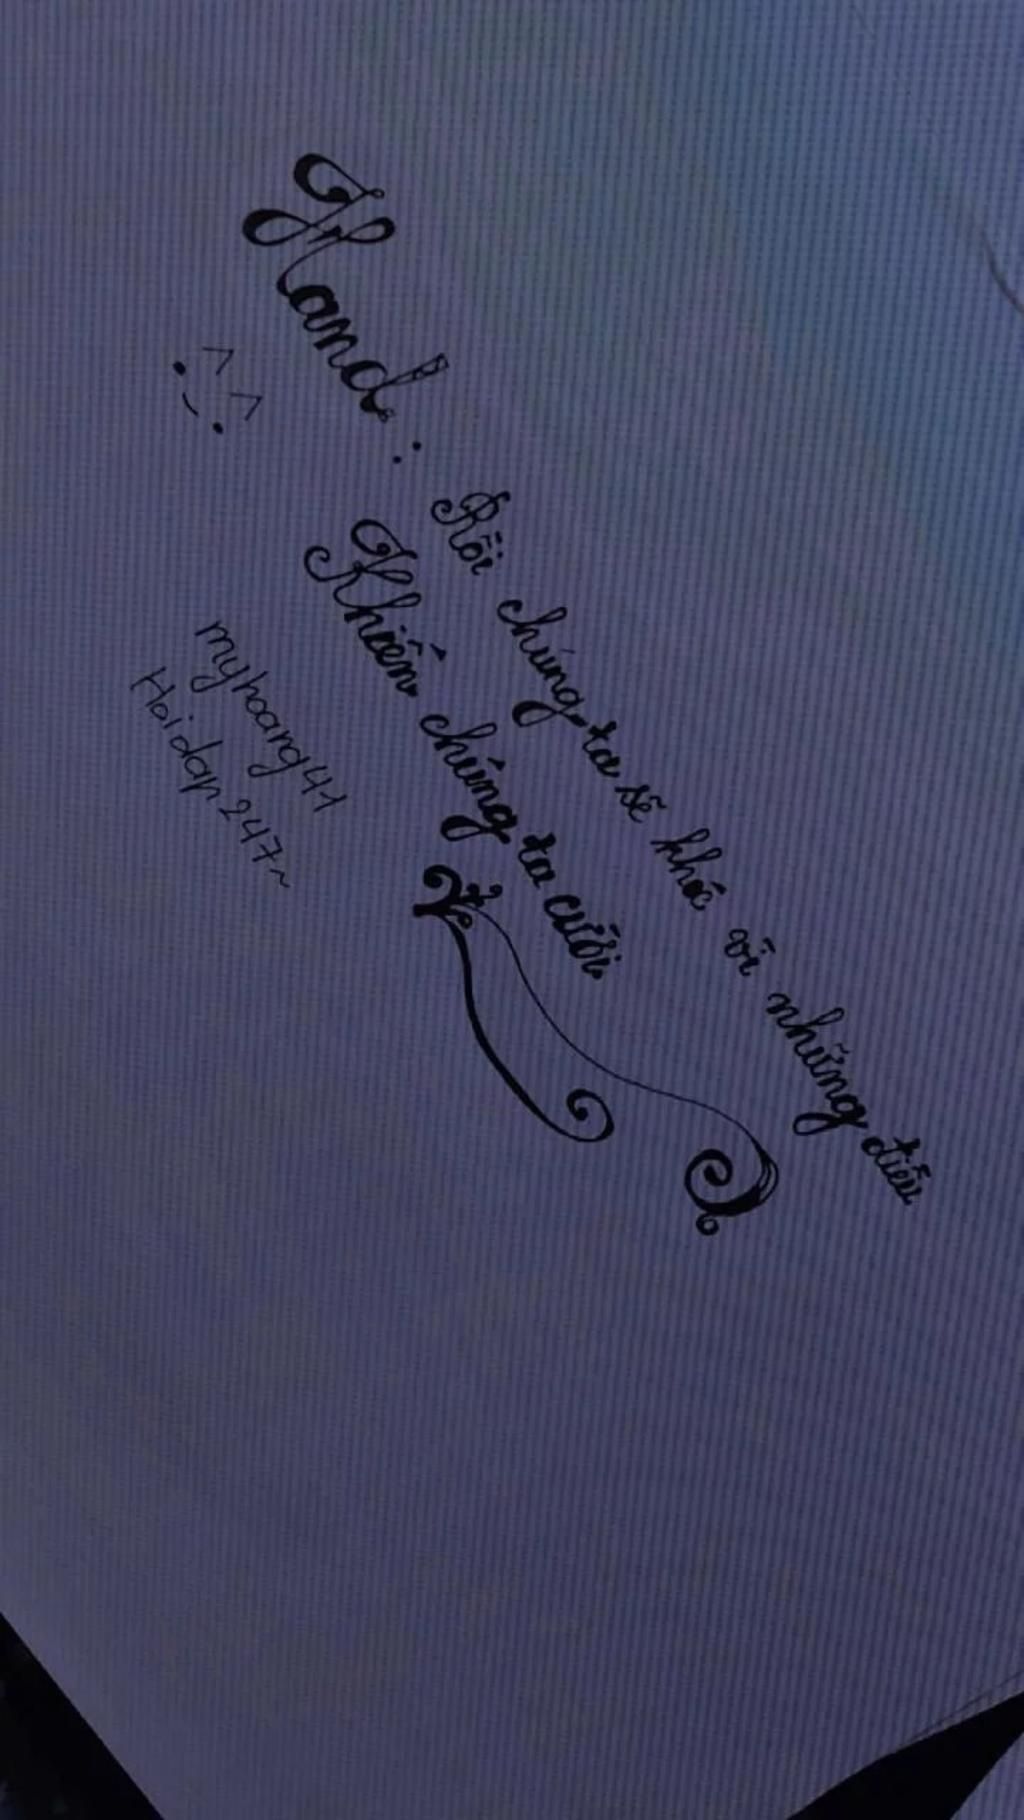 Hand: Rồi chúng ta sẽ khóc vì những điều
Khiến chúng ta cười
^ ^
myhoang41
Hoidap247~